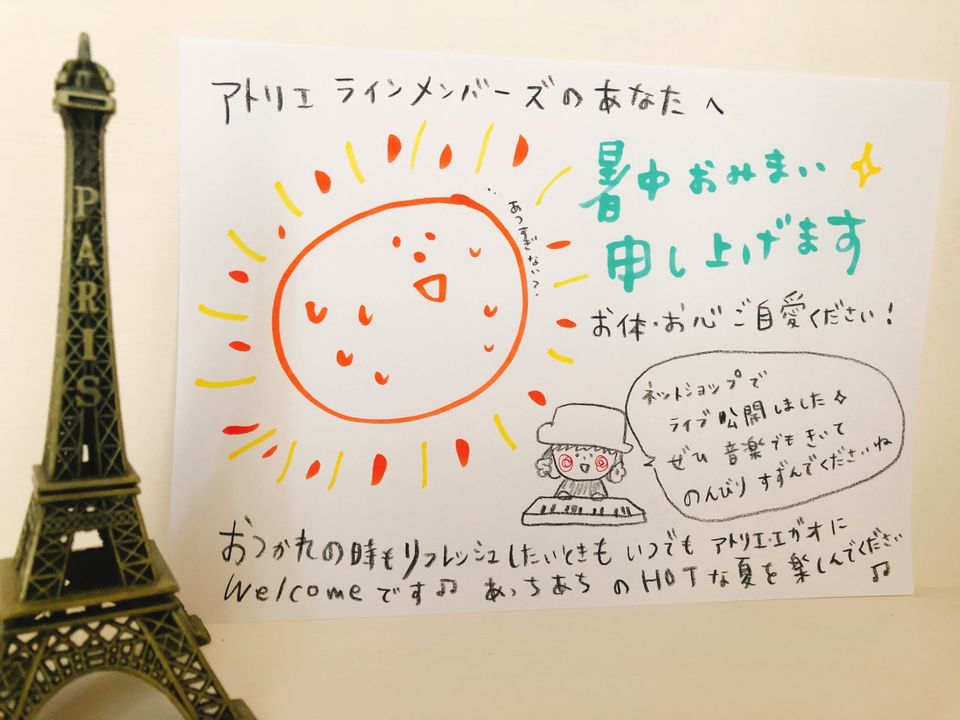 PARIS
アトリエ ラインメンバーズのあなたへ
…あつすぎない?
暑中おみまい
申し上げます
お体・お心ご自愛ください!
ネットショップで
ライブ公開しました
ぜひ 音楽でも きいて
のんびり すずんでくださいね
おつかれの時も リフレッシュしたいときも いつでも アトリエ・エガオに
Welcomeです♫ あっちあち のHOTな夏を楽しんでください♫